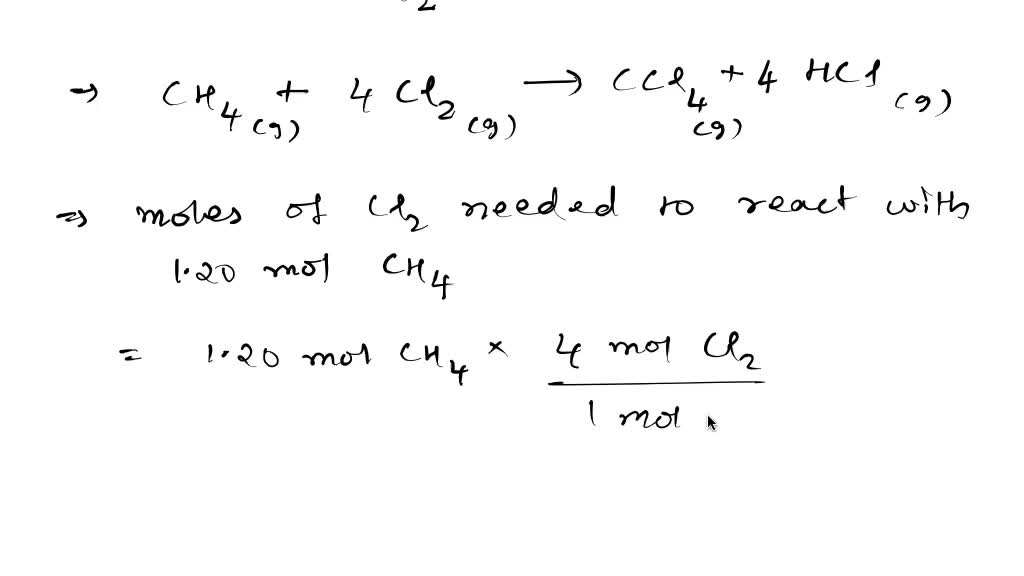 2
→ CH4(g) + 4 Cl2(g) → CCl4(g) + 4 HCl(g)
⇒ moles of Cl2 needed to react with
1.20 mol CH4
= 1.20 mol CH4 × 4 mol Cl2
1 mol